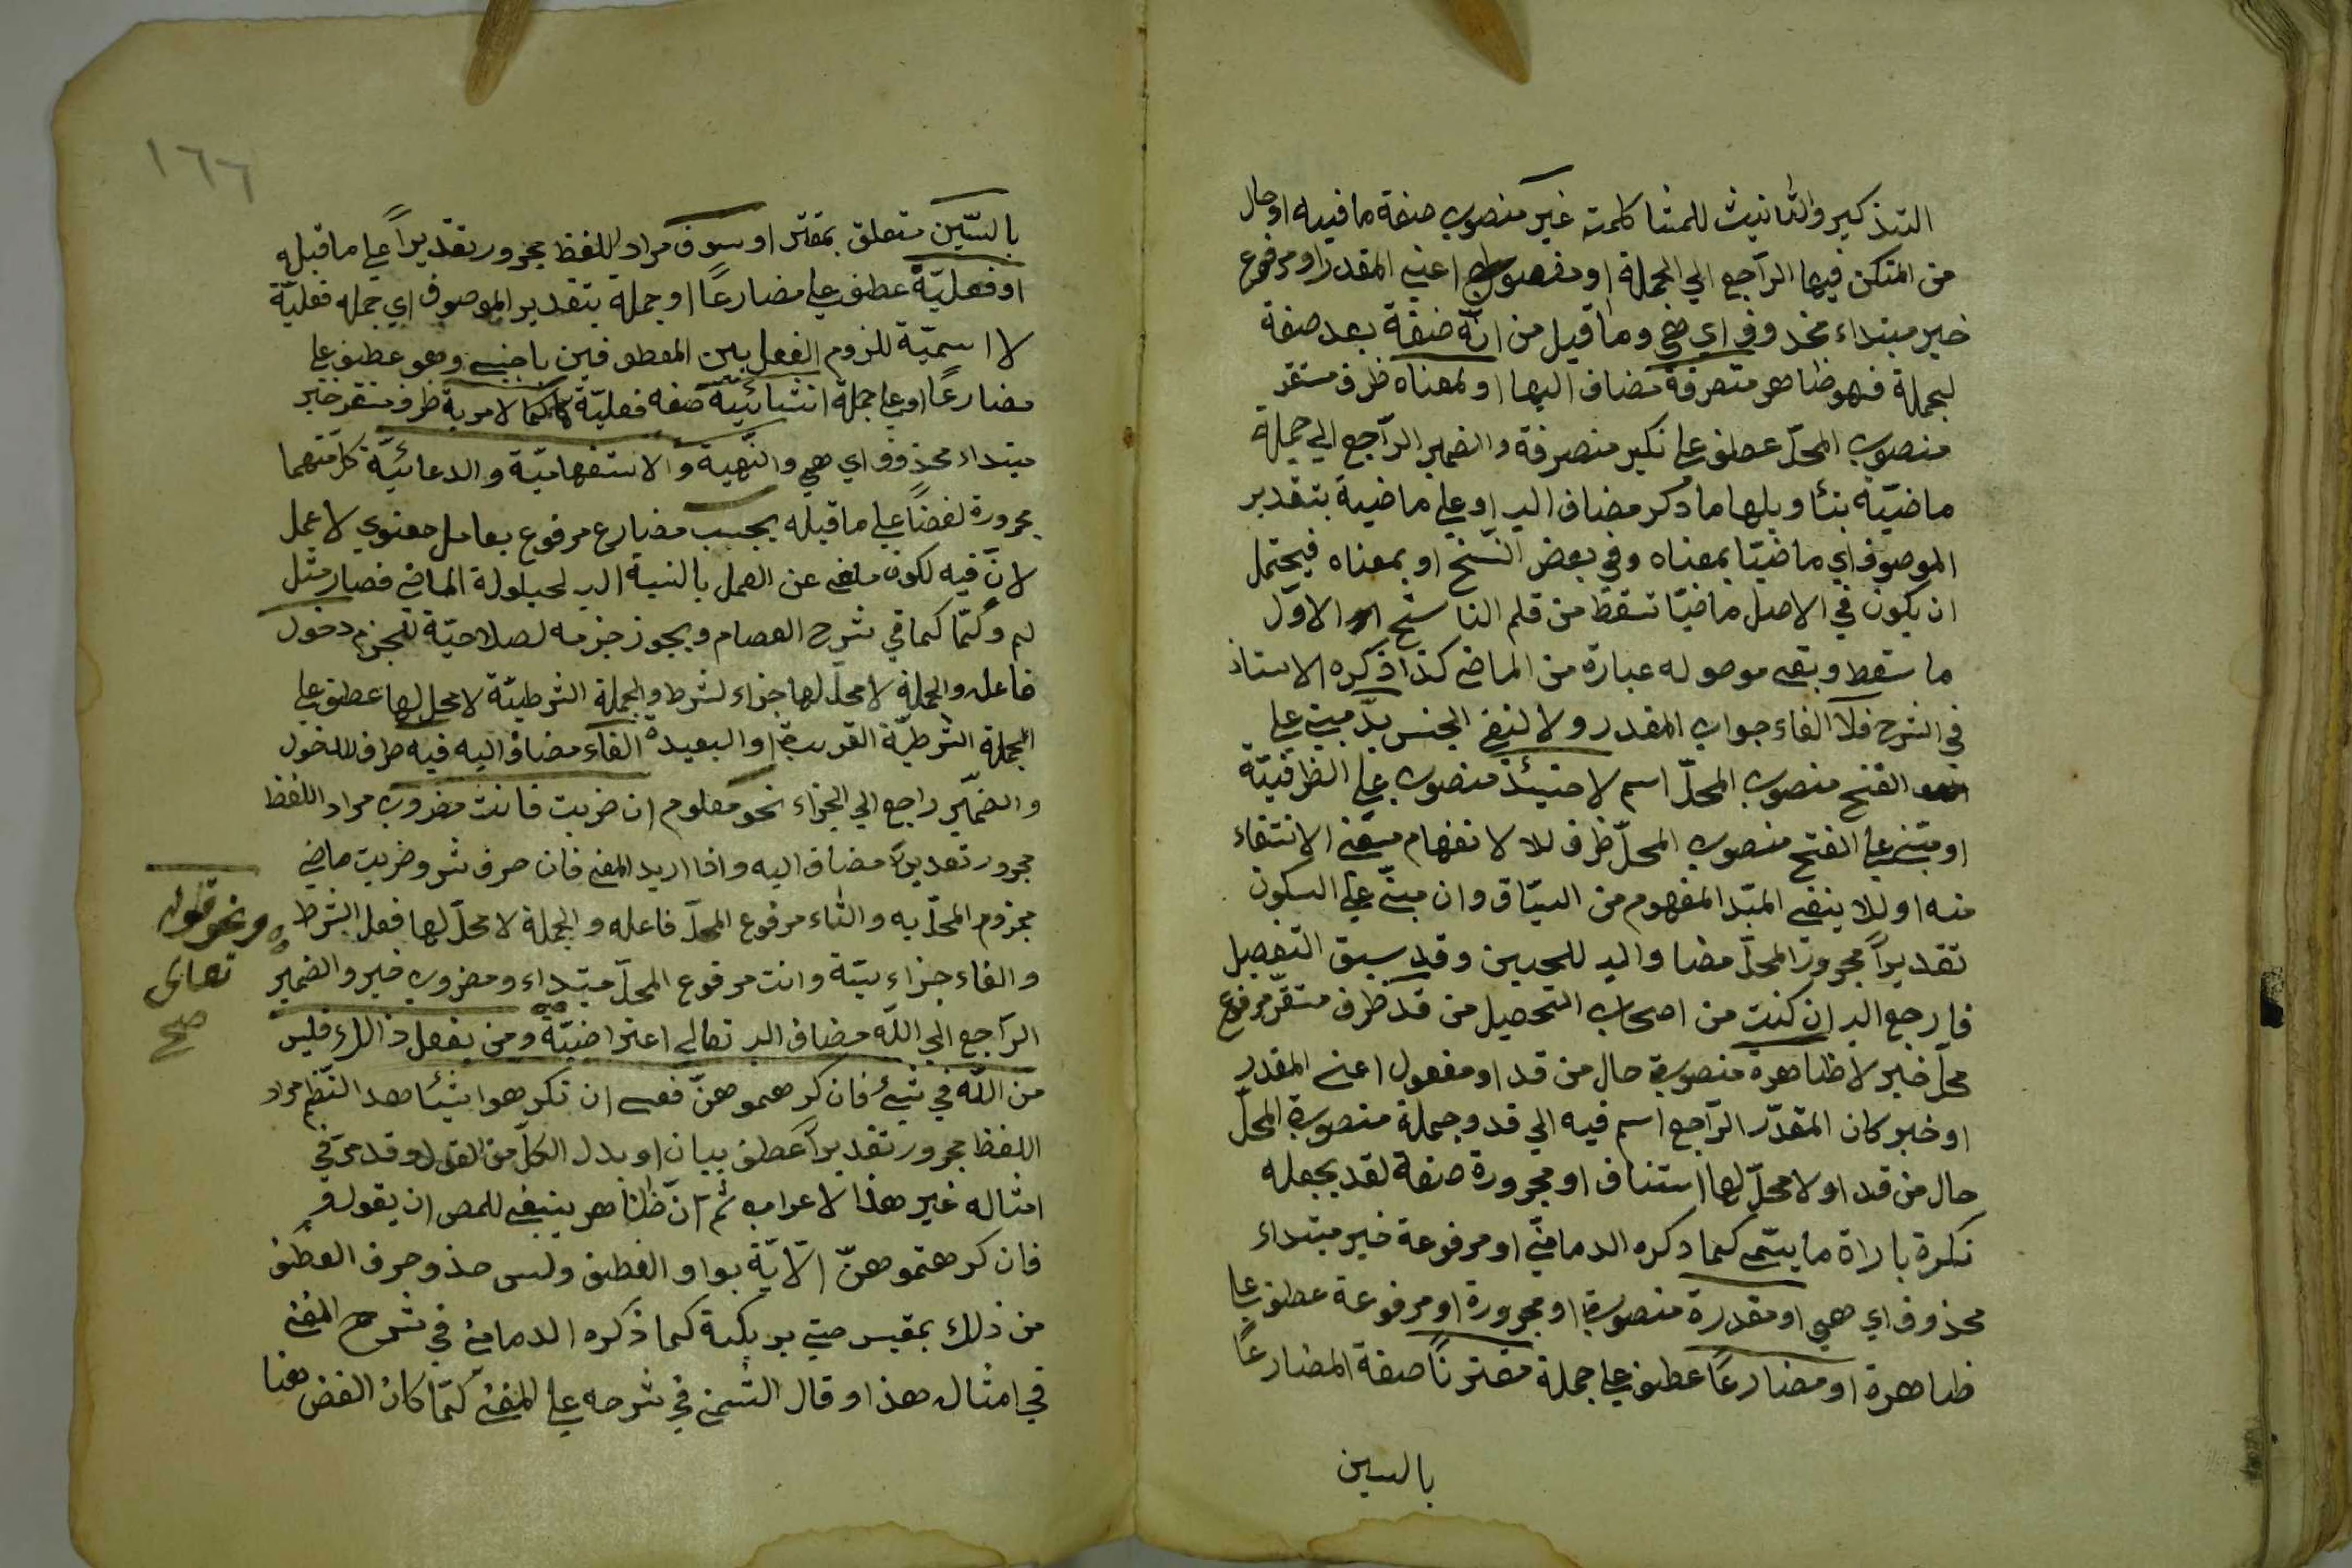 التذكير والتأنيث للمشاكلمة غير منصوب صفة مافيه او حال
من المتكن فيها الراجع الي الجملة او مفعول اعني المقدر او مرفوع
خبر مبتداء محذوف اي هي وما قيل من انّه صفة بعد صفة
لجملة فهو ظاهر متصرفة مضاف اليها او لمعناه ظرف مستقر
منصوب المحلّ عطف علي نكير منصرفة والضمير الرّاجع الي جملة
ماضيّة بتأويلها ما ذكر مضاف اليه او علي ماضية بتقدير
الموصوف اي ماضيّا بمعناه وفي بعض النّسخ او بمعناه فيحتمل
ان يكون في الاصل ماضيّا تسقط من قلم الناسخ الاوّل
ما سقط وبقي موصوله عبارة من الماضي كذا ذكره الاستاذ
في الشرح فلا الفاء جواب المقدر ولا لنفي الجنس بدّ مبني علي
الفتح منصوب المحلّ اسم لا حينئذ منصوب علي الظرفيّة
او مبني علي الفتح منصوب المحلّ ظرف للا لانفهام معني الانتفاء
منه او للا ينفي المبّد المفهوم من السيّاق وان مبنّي علي السكون
تقديراً مجرور المحلّ مضاف اليه للحين وقد سبق التفصيل
فارجع اليه ان كنت من اصحاب التحصيل من قد ظرف مستقرّ مرفوع
محلّ خبر لا ظاهرة منصوبة حال من قد او مفعول اعني المقدر
او خبر كان المقدّر الرّاجع اسم فيه الي قد وجملة منصوبة المحلّ
حال من قد او لا محلّ لها استئناف او مجرورة صفة لقد بجعله
نكرة باراة ما يسّمي كما ذكره الدمامنّي او مرفوعة خبر مبتداء
محذوف اي هي او مقدرة منصوبة او مجرورة او مرفوعة عطف علي
ظاهرة او مضارعًا عطف علي جملة مقترنًا صفة المضارعًا
بالسين
١٦٦
بالسّين متعلق بمقتر او سوف مراد اللفظ مجرور تقديراً علي ماقبله
او فعليّة عطف علي مضارعًا او جملة بتقدير الموصوف اي جملة فعليّة
لا اسميّة للزوم الفصل بين المعطوفين باجنبي وهو عطف علي
مضارعًا او علي جملة انشائيّة صفة فعليّة كما لامرية ظرف مستقر خبر
مبتداء محذوف اي هي والنّهية والاستفهاميّة والدعائيّة كلّ منهما
مجرورة لفضاً علي ماقبله يجب مضارع مرفوع بعامل معنوي لا عمل
لانّ فيه لكون ملغي عن العمل بالنسبة اليه لحيلولة الماضي فصار مثل
لم ولمّا كما في شرح العصام ويجوز جزمه لصلاحيّة للجزم دخول
فاعله والجملة لا محلّ لها جزاء لشرط والجملة الشرطيّة لا محل لها عطف علي
الجملة الشرطيّة القريبة او البعيدة الفاء مضاف اليه فيه ظرف للدخول
والضمّير راجع الي الجزاء نحو معلوم ان ضربت فانت مضروب مراد اللفظ
مجرور تقديراً مضاف اليه واذا اريد المعني فان حرف شر وضربت ماضي
مجزوم المحلّ به والتاء مرفوع المحلّ فاعله والجملة لا محلّ لها فعل الشرط
والفاء جزاء يتة وانت مرفوع المحلّ مبتداء ومضروب خبر والضمير
الرّاجع الي اللّه مضاف اليه تعالي اعتراضيّة ومن يفعل ذالك فليس
من اللّه في شئ فان كرهتموهنّ فعسي ان تكرهوا شيئا هذ النّظم مراد
اللفظ مجرور تقديراً عطف بيان او بدل الكلّ من القول وقد مرّ في
امثاله غير هذا الاعراب ثم انّ ظاهر ينبغي للمص ان يقول و
فان كرهتموهنّ الآيّة بواو العطف وليس حذو حرف العطف
من ذلك بمقيس حتي يربكبة كما ذكره الدماميني في شرح المغني
في امثال هذا وقال الشمني في شرحه علي المغني لمّا كان الغض هنا
ونحو قوله
تعالى
صح